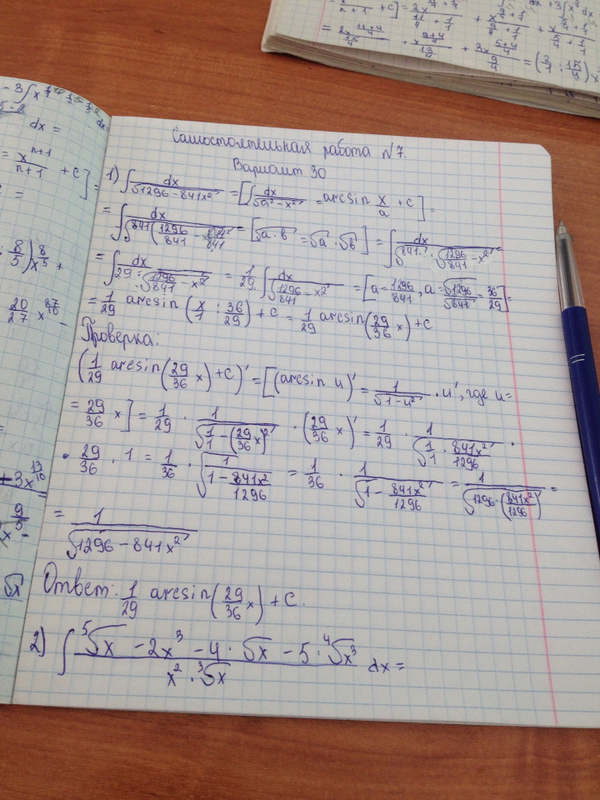 x/(n+1) + c] = 2x
+ 3∫x dx
- 3∫x
dx =
= x^(n+1)/(n+1) + c] =
8/5) x^(8/5) +
20/27 x^(27/10) -
+ 3x^(13/10)
9/5
√x
Самостоятельная работа №7.
Вариант 30
1) ∫ dx/√(1296 - 841x²) = [∫ dx/√(a² - x²) = arcsin x/a + c] =
= ∫ dx/√(841(1296/841 - 841x²/841)) = [√(a·b) = √a · √b] = ∫ dx/(√841 · √(1296/841 - x²)) =
= ∫ dx/(29 · √(1296/841 - x²)) = 1/29 · ∫ dx/√(1296/841 - x²) = [a = 1296/841, a = √1296/√841 = 36/29] =
= 1/29 arcsin(x/1 : 36/29) + c = 1/29 arcsin(29/36 x) + c
Проверка:
(1/29 arcsin(29/36 x) + c)' = [(arcsin u)' = 1/√(1 - u²) · u', где u =
= 29/36 x] = 1/29 · 1/√(1 - (29/36 x)²) · (29/36 x)' = 1/29 · 1/√(1/1 · 841x²/1296) ·
· 29/36 · 1 = 1/36 · 1/√(1 - 841x²/1296) = 1/36 · 1/√(1 - 841x²/1296) = 1/√(1296 · (841x²/1296)) =
= 1/√(1296 - 841x²)
Ответ: 1/29 arcsin(29/36 x) + c.
2) ∫ (⁵√x - 2x³ - 4 · √x - 5 · ⁴√x³)/(x² · ³√x) dx =